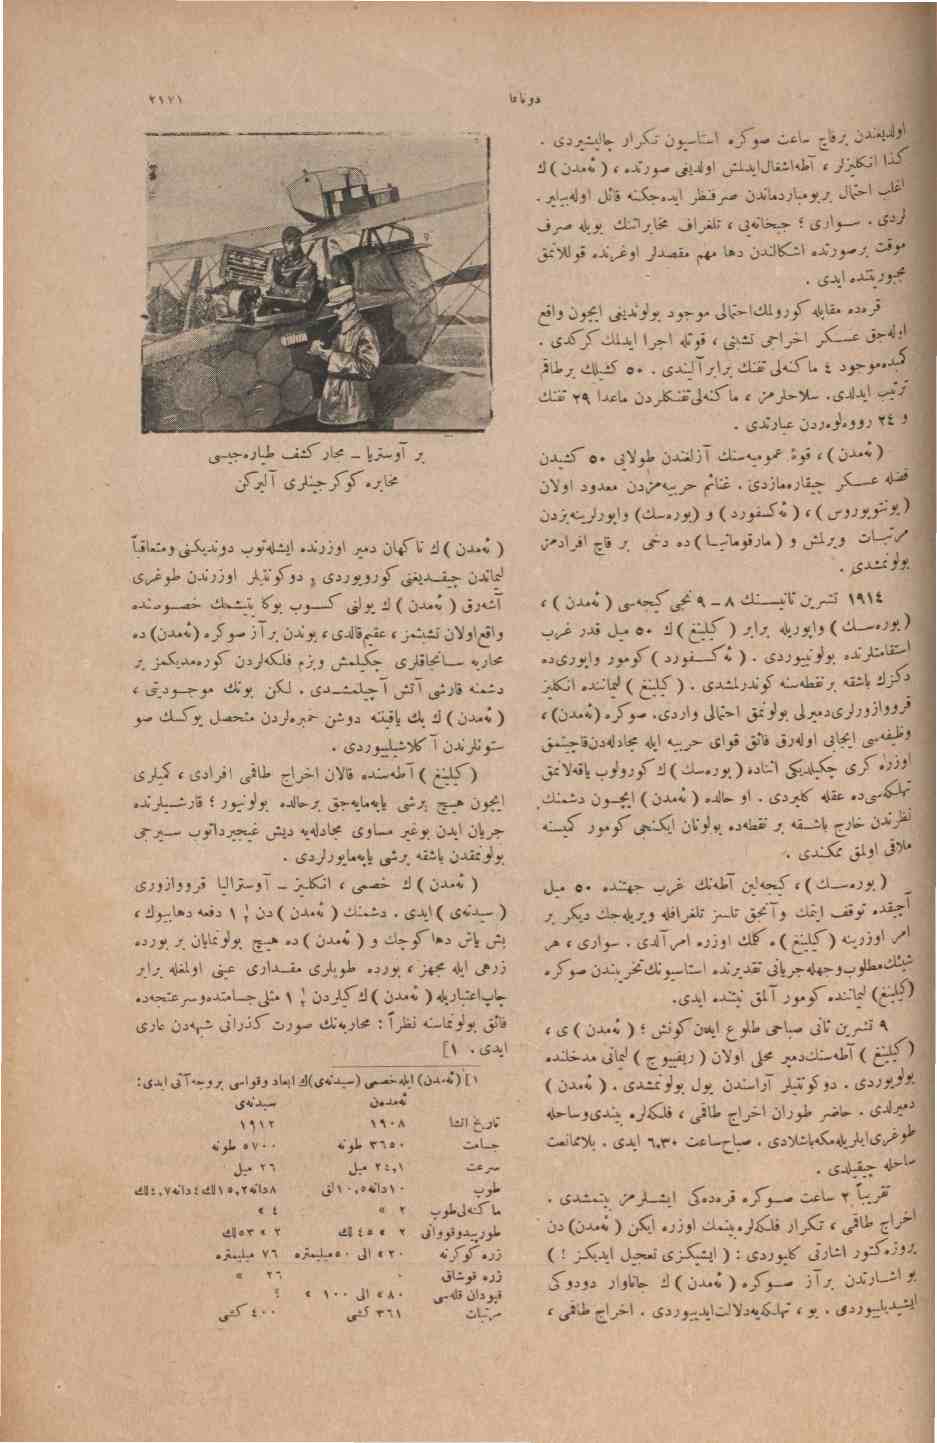 دوناما
٢١٧١
اولديغندن برقاچ ساعت صوكره استاسيون تكرار چاليشيردى .
كذا انكليزلر ، آطه‌اشغال‌ايدلمش اولديغى صورتده ، ( ئه‌مدن ) ك
اغلب احتمال بربومباردماندن صرفنظر ايده‌جكنه قائل اوله‌بيلير .
لردى . سوارى ؛ جبخانه‌يى ، تلغراف مخابراتنك بويله صرف
موقت برصورتده اشكالندن دها مهم مقصدلر اوغرنده قوللانمق
مجبوريتنده ايدى .
قره‌ده مقابله كورولمك‌احتمالى موجود بولونديغى ايچون واقع
اوله‌جق عسكر اخراجى تشبثى ، قوتله اجرا ايدلمك كركدى .
كميده‌موجود ٤ ماكنه‌لى تفنك برابر آليندى . ٥٠ كشيلك برطاقم
ترتيب ايدلدى . سلاحلرمز ، ماكنه‌لى‌تفنكلردن ماعدا ٢٩ تفنك
و ٢٤ رووه‌لوه‌ردن عبارتدى .
( ئه‌مدن ) ، قوۀ عموميه‌سنك آزلغندن طولايى ٥٠ كشيدن
فضله عسكر چيقاره‌مازدى . غنائم حربيه‌مزدن معدود اولان
( پونتوپوروس ) ، ( ئه‌كسفورد ) و (بوره‌سك) واپورلرينه‌بزدن
مرتبات ويرلمش و ( مارقومانيا ) ده دخى بر قاچ افرادمز
بولونمشدى .
١٩١٤ تشرين ثانيسنك ٨ – ٩ نجى كيجه‌سى ( ئه‌مدن ) ،
( بوره‌سك ) واپوريله برابر ( كيلينغ ) ك ٥٠ ميل قدر غرب
استقامتلرنده بولونييوردى . ( ئه‌كسفورد ) كومور واپورى‌ده
دكزك باشقه برنقطه‌سنه كوندرلمشدى . ( كيلينغ ) ليماننده انكليز
قرووازورلرى‌دميرلى بولونمق احتمالى واردى . صوكره (ئه‌مدن) ،
وظيفه‌سى ايجابى اوله‌رق فائق قواى حربيه ايله مجادله‌دن‌قاچينمق
اوزره كرى چكيلديكى اثناده ( بوره‌سك ) ك كورولوب ياقه‌لانمق
تهلكه‌سى‌ده عقله كليردى . او حالده ( ئه‌مدن ) ايچون دشمنك
نظرندن خارج باشقه بر نقطه‌ده بولونان ايكنجى كومور كميسنه
ملاقى اولمق ممكندى .
( بوره‌سك ) ، كيجه‌لين آطه‌نك غرب جهتنده ٥٠ ميل
آچيقده توقف ايتمك وآنجق تلسز تلغرافله ويريله‌جك ديكر بر
امر اوزرينه ( كيلينغ ) ه كلمك اوزره امر آلدى . سوارى ، هر
شيئك‌مطلوب‌وجهله‌جريانى تقديرنده استاسيونك‌تخريبندن صوكره
(كيلينغ) ليماننده كومور آلمق نيتنده ايدى .
٩ تشرين ثانى صباحى طلوع ايدن كونش ؛ ( ئه‌مدن ) ى ،
( كيلينغ ) آطه‌سنك‌دمير محلى اولان ( ريفييوج ) ليمانى مدخلنده
بولويوردى . دوكونتيلر آراسندن يول بولونمشدى . ( ئه‌مدن )
دميرلدى . حاضر طوران اخراج طاقمى ، فلكه‌لره بيندى‌وساحله
طوغرى‌ايلريله‌مكه‌باشلادى . صباح‌ساعت ٦,٣٠ ايدى . بلاممانعت
ساحله چيقيلدى .
تقريباً ٢ ساعت صوكره قره‌ده‌كى ايشلرمز بيتمشدى .
اخراج طاقمى ، تكرار فلكه‌لره بينمك اوزره ايكن ( ئه‌مدن) دن
پروژه‌كتور اشارتى كلييوردى : ( ايشيكزى تعجيل ايديكز ! )
بو اشارتدن برآز صوكره ( ئه‌مدن ) ك جاناوار دودوكى
ايشيديلييوردى . بو ، تهلكه‌يه‌دلالت‌ايدييوردى . اخراج طاقمى ،
بر آوستريا – مجار كشف طياره‌جيسى
مخابره كوكرجينلرى آليركن
( ئه‌مدن ) ك ناكهان دمير اوزرنده ايشله‌توب دونديكنى ومتعاقباً
ليماندن چيقديغنى كورويوردى و دوكونتيلر اوزرندن طوغرى
آشه‌رق ( ئه‌مدن ) ك يولنى كسوب بوكا يتيشمك خصوصنده
واقع‌اولان تشبثمز ، عقيم‌قالدى ، بوندن برآز صوكره (ئه‌مدن) ده
محاربه سانجاقلرى چكيلمش وبزم فلكه‌لردن كوره‌مديكمز بر
دشمنه قارشى آتش آچيلمشدى . لكن بونك موجوديتى ،
( ئه‌مدن ) ك پك ياقيننه دوشن خمبره‌لردن متحصل يوكسك صو
ستونلرندن آكلاشيلييوردى .
( كيلينغ ) آطه‌سنده قالان اخراج طاقمى افرادى ، كميلرى
ايچون هيچ برشى ياپه‌مايه‌جق برحالده بولونيور ؛ قارشيلرنده
جريان ايدن بوغير مساوى مجادله‌يه ديش غيجيرداتوب سيرجى
بولونمقدن باشقه برشى ياپه‌مايورلردى .
( ئه‌مدن ) ك خصمى ، انكليز – آوستراليا قرووازورى
( سيدنه‌ى ) ايدى . دشمنك ( ئه‌مدن ) دن ١ دفعه دهابيوك ،
بش ياش دها كوچك و ( ئه‌مدن ) ده هيچ بولونمايان بر بورده
زرهى ايله مجهز ، بورده طوپلرى مقدارى عينى اولمقله برابر
چاپ‌اعتباريله ( ئه‌مدن ) ك‌كيلردن ١ مثلى‌جسامتده‌وسرعتجه‌ده
فائق بولونماسنه نظراً : محاربه‌نك صورت كذرانى شبهه‌دن عارى
ايدى . [١
[١ (ئه‌مدن) ايله‌خصمى (سيدنه‌ى)ك ابعاد وقواسى بروجه‌آتى ايدى :
ئه‌مده‌ن سيدنه‌ى
تاريخ انشا ١٩٠٨ ١٩١٢
جسامت ٣٦٥٠ طونه ٥٧٠٠ طونه
سرعت ٢٤,١ ميل ٢٦ ميل
طوپ ١٠دانه١٠,٥لق ٨دانه١٥,٢لك٤دانه٤,٧لك
ماكنه‌لى‌طوپ ٢ » ٤ »
طورپيدوقووانى ٢ » ٤٥ لك ٢ » ٥٣لك
زره كوكرته ٢٠ » الى ٥٠ميليمتره ٧٦ ميليمتره
زره قوشاق ٠ ٢٦ »
قپودان قله‌سى ٨٠ » الى ١٠٠ » ؟
مرتبات ٣٦١ كشى ٤٠٠ كشى